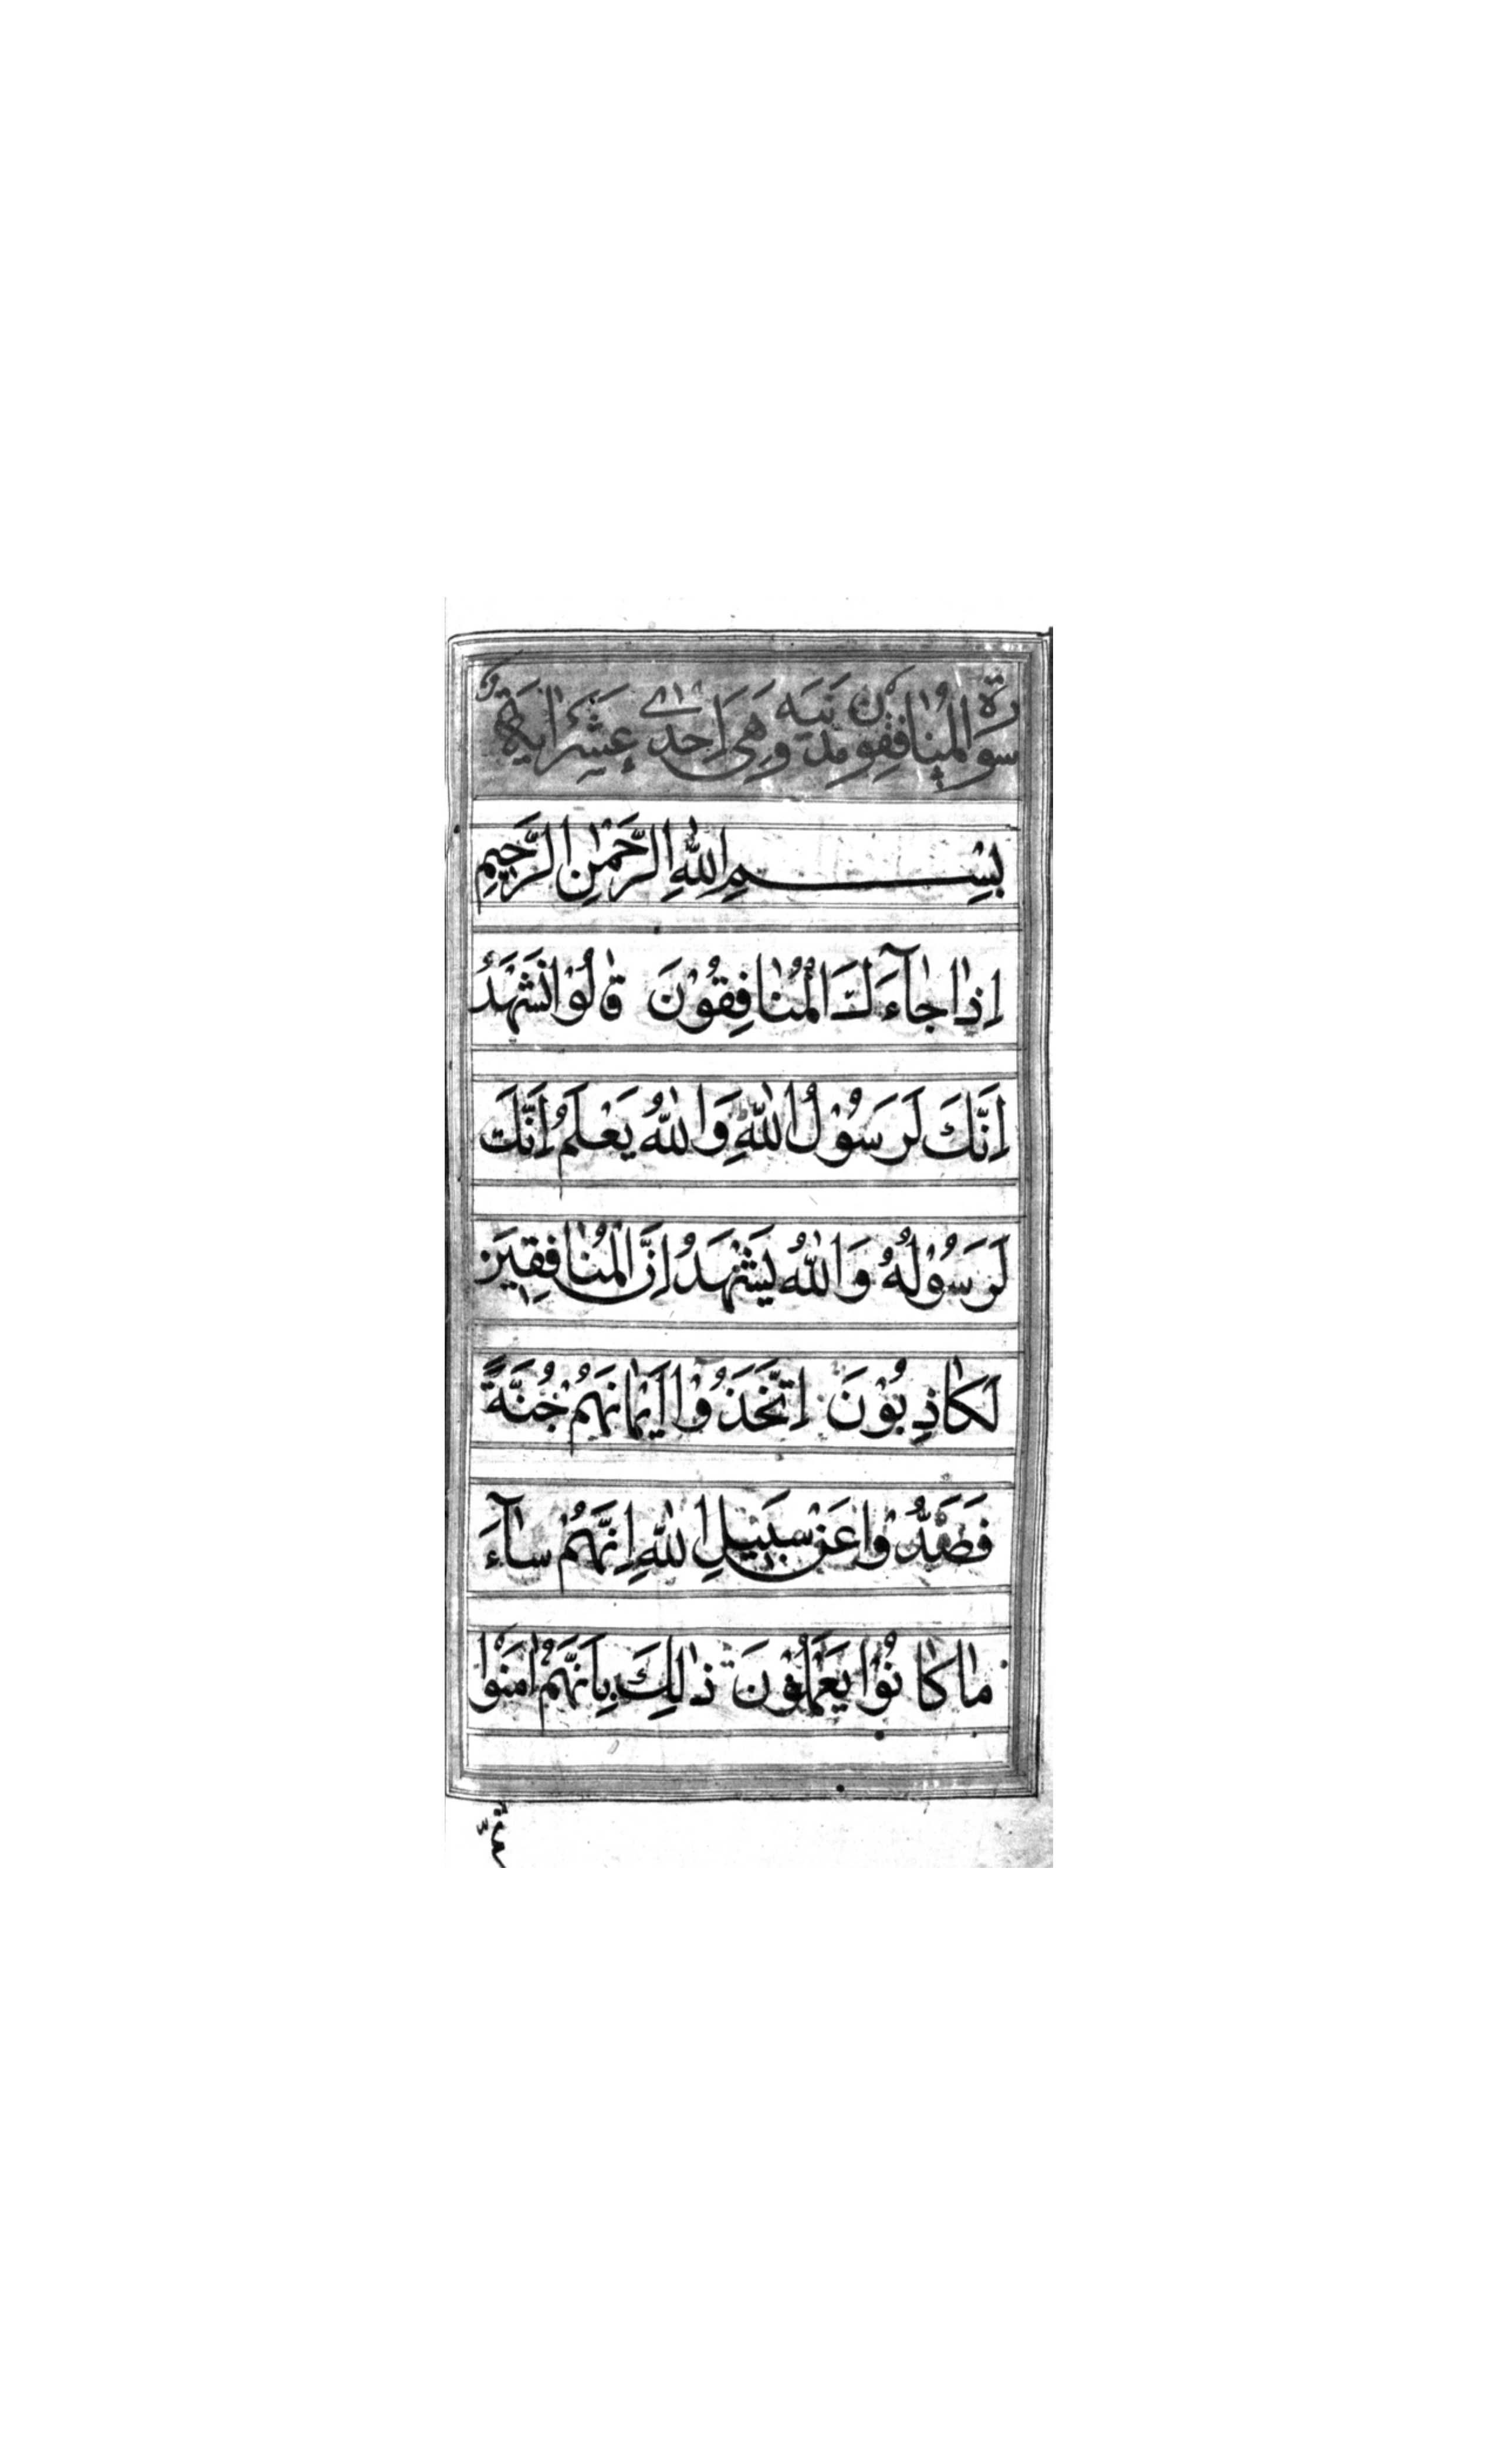 سورة المنافقون مدنية وهي احدى عشر اية
بِسْمِ اللّٰهِ الرَّحْمٰنِ الرَّحِيمِ
اِذٰا جٰآءَكَ الْمُنٰافِقُوْنَ قٰالُوْا نَشْهَدُ
اِنَّكَ لَرَسُوْلُ اللّٰهِ وَاللّٰهُ يَعْلَمُ اِنَّكَ
لَرَسُوْلُهُ وَاللّٰهُ يَشْهَدُ اِنَّ الْمُنٰافِقِيْنَ
لَكٰاذِبُوْنَ اِتَّخَذُوْا اَيْمٰانَهُمْ جُنَّةً
فَصَدُّوْا عَنْ سَبِيْلِ اللّٰهِ اِنَّهُمْ سٰآءَ
مٰا كٰانُوْا يَعْمَلُوْنَ ذٰلِكَ بِاَنَّهُمْ اٰمَنُوْا
ثمّ